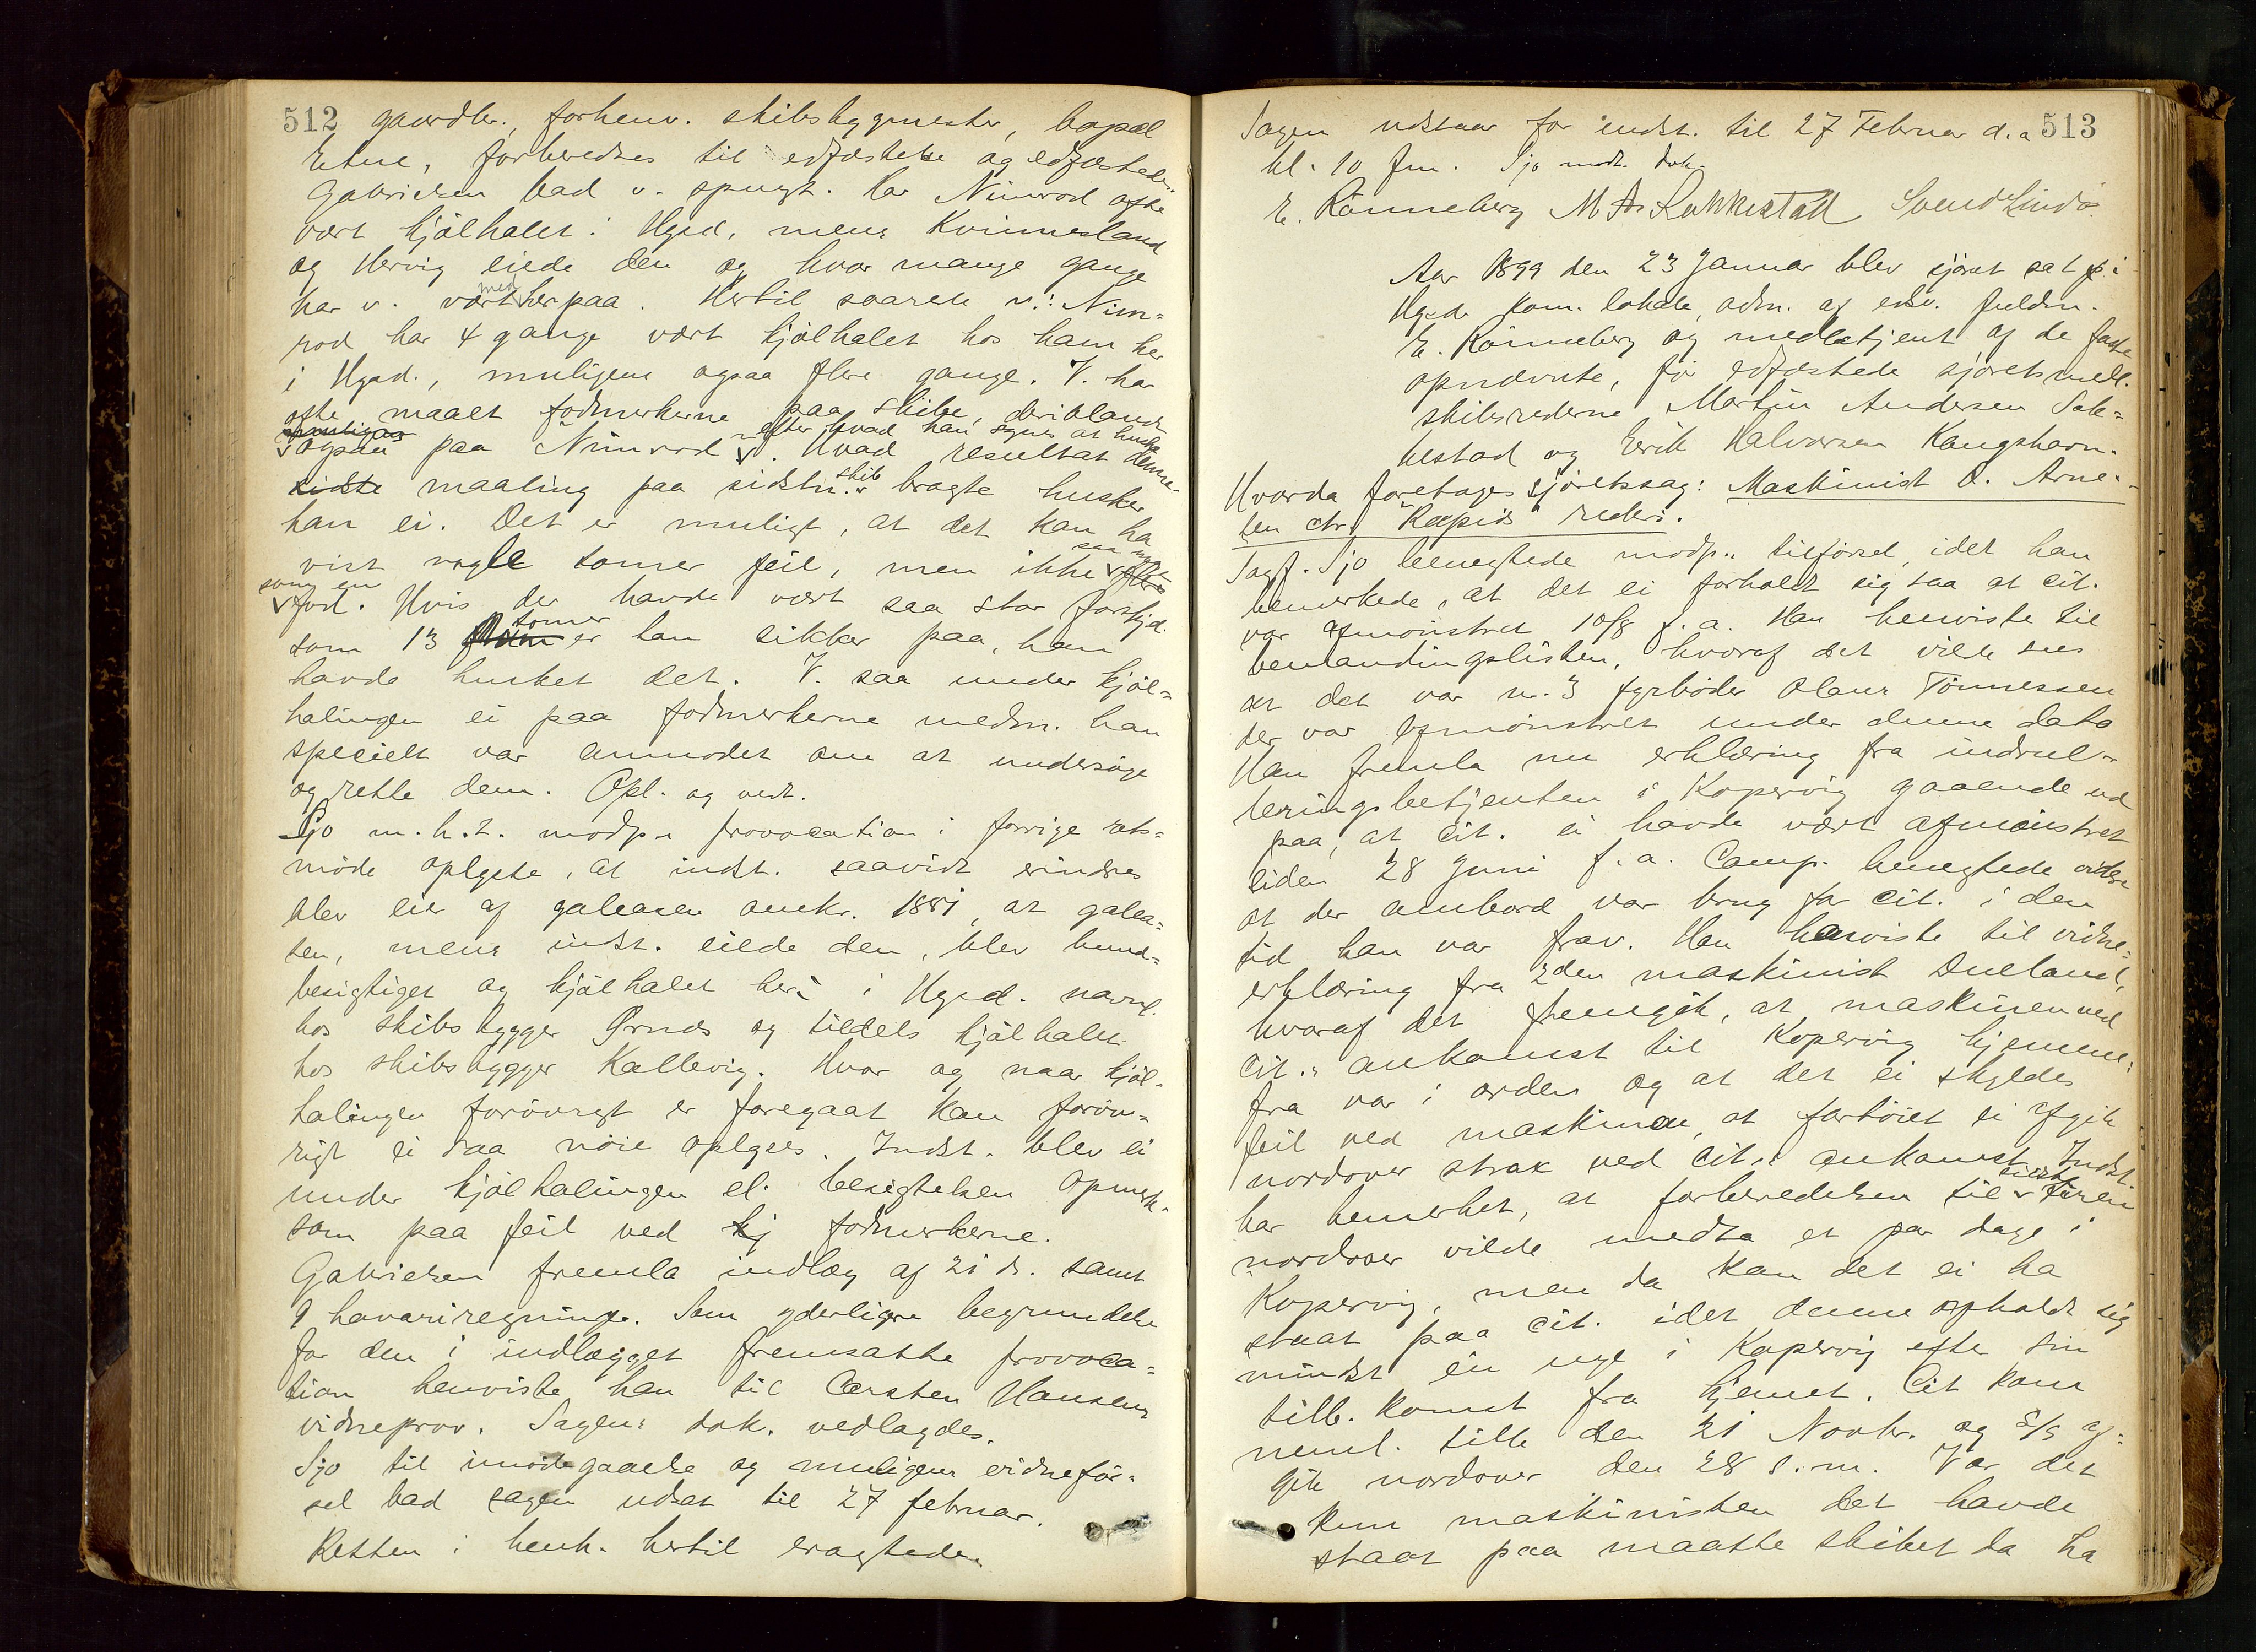 512 gaardbr., forhenv. skibsbygmester, bopæl
Etne, forberedtes til edfæstelse og edfæstedes.
Gabrielsen bad v. spurgt. Har Nimrod ofte
vært kjølhalet i Hgsd, mens Kvinnesland
og Hervig eiede den og hvor mange gange
har v. vært med her paa. Hertil svarede v.: Nim=
rod har 4 gange vært kjølhalet hos ham her
i Hgsd., muligens ogsaa flere gange. V. har
ofte maalt fodmerkerne paa skibe, deriblandt
ogsaa paa Nimrod efter hvad han synes at huske. Hvad resultat denne
sidste maaling paa sidstn. skib bragte husker
han ei. Det er muligt, at det kan ha
vist nogle tomer feil, men ikke saa meget
som en fod. Hvis der havde vært saa stor forskjel
som 13 tomer er han sikker paa, han
havde husket det. V. saa under kjøl=
halingen ei paa fodmerkerne medm. han
specielt var anmodet om at undersøge
og rette dem. Opl. og vedt.
Sjo m.h.t. modp.s provocation i forrige rets=
møde oplyste, at indst. saavidt erindres
blev eier af galeasen omkr. 1881, at galea=
sen, mens indst. eiede den, blev bund=
besigtiget og kjølhalet her i Hgsd. navnl.
hos skibsbygger Ørnes og tildels kjølhalet
hos skibsbygger Kallevig. Hvor og naar kjøl=
halingen forøvrigt er foregaat kan forøv=
rigt ei saa nøie oplyses. Indst. blev ei
under kjølhalingen el. besigtelsen opmerk=
som paa feil ved kj fodmerkerne.
Gabrielsen fremla indlæg af 21 ds. samt
9 havariregninger. Som yderligere begrundelse
for den i indlægget fremsatte provoca=
tion henviste han til Carsten Hansens
vidneprov. Sagens dok. vedlagdes.
Sjo til imødegaaelse og muligens vidnefør=
sel bad sagen udsat til 27 februar.
Retten i henh. hertil eragtede:
Sagen udstaar for indst. til 27 Februar d.a. 513
kl. 10 fm. Sjo modt. dok.
E. Rønneberg M A Sakkestad Svend Lindø
Aar 1899 den 23 Januar blev sjøret sat i
Hgsds kom. lokale, adm. af edsv. fuldm.
E. Rønneberg og medbetjent af de faste
opnævnte, før edfæstede sjøretsmedl.
skibsrederne Martin Andersen Sak=
kestad og Erik Halvorsen Kongshavn.
Hvorda foretoges sjøretssag: Maskinist O. Arne=
sen ctr. "Rapids" rederi.
Sagf. Sjo benegtede modp.s tilførsel, idet han
bemerkede, at det ei forholdt sig saa at cit.
var afmønstret 10/8 f.a. Han henviste til
bemandingslisten, hvoraf det vilde sees
at det var nr. 3 fyrbøder Olaus Tønnessen
der var afmønstret under denne dato
Han fremla nu erklæring fra indrul=
leringsbetjenten i Kopervig gaaende ud
paa, at cit. ei havde vært afmønstret
siden 28 Juni f.a. Comp. benegtede videre
at der ombord var brug for cit. i den
tid han var frav. Han henviste til vidne=
erklæring fra 2den maskinist Dueland,
hvoraf det fremgik, at maskinen ved
cit.s ankomst til Kopervig hjemme=
fra var i orden og at det ei skyldes
feil ved maskinen, at fartøiet ei afgik
nordover strax ved cit.s ankomst. Indst.
har bemerket, at forberedelsen til turen
nordover vilde medta et par dage i
Kopervig, men da kan det ei ha
staat paa cit. idet denne opholdt sig
mindst én uge i Kopervig efter sin
tilb. komst fra hjemet. Cit kom
neml. tilb den 21 Novbr. og S/S af=
gik nordover den 28 s.m. Var det
kun maskinisten det havde
staat paa maatte skibet da ha